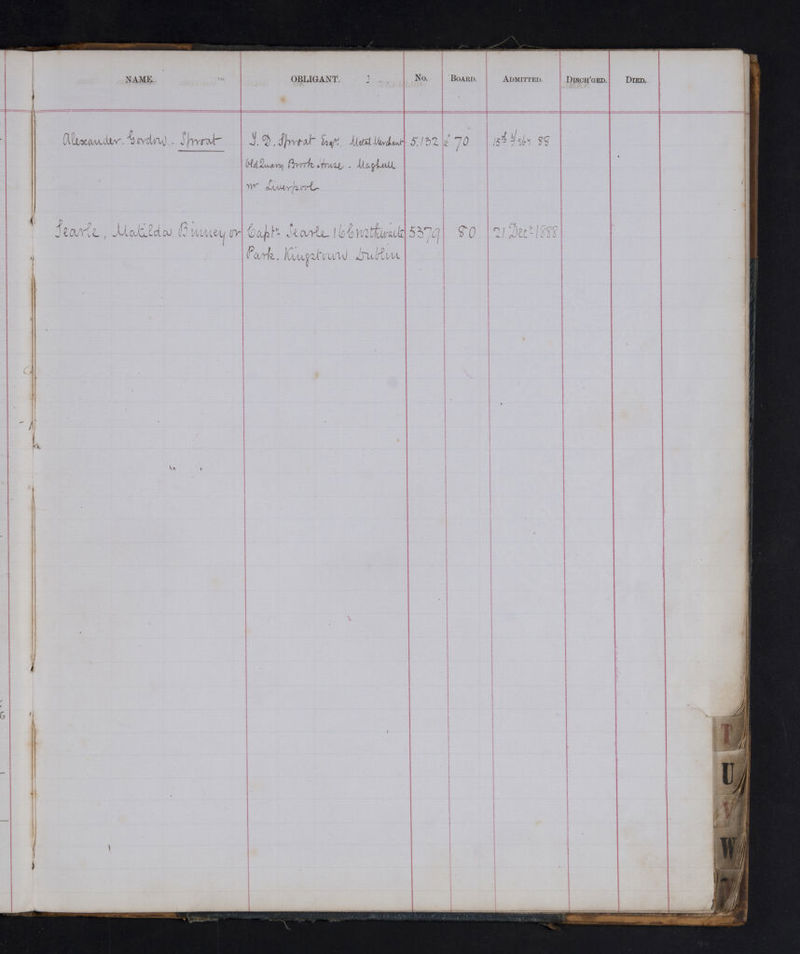 NAME. OBLIGANT. No. BOARD. ADMITTED. DISCH'GED. DIED.
Alexander Gordon Sproat J. D. Sproat Esqre. Metal Merchant 5,132 £ 70 15th 88
Old Quarry Brook House. Maghull
nr Liverpool
Searle, Matilda Binney or Captn Searle 16 Crosthwaite 5379 80 21 Decr 1888
Park. Kingstown Dublin
T
U
V
W